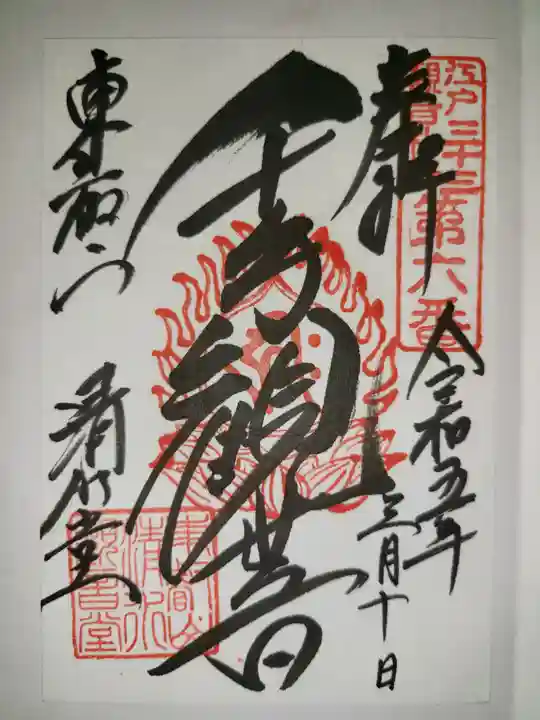 江戸三十三
観音
第六番
奉拝
令和五年
三月十日
千手観世音
東叡山
清水堂
東叡山
清水
観音堂